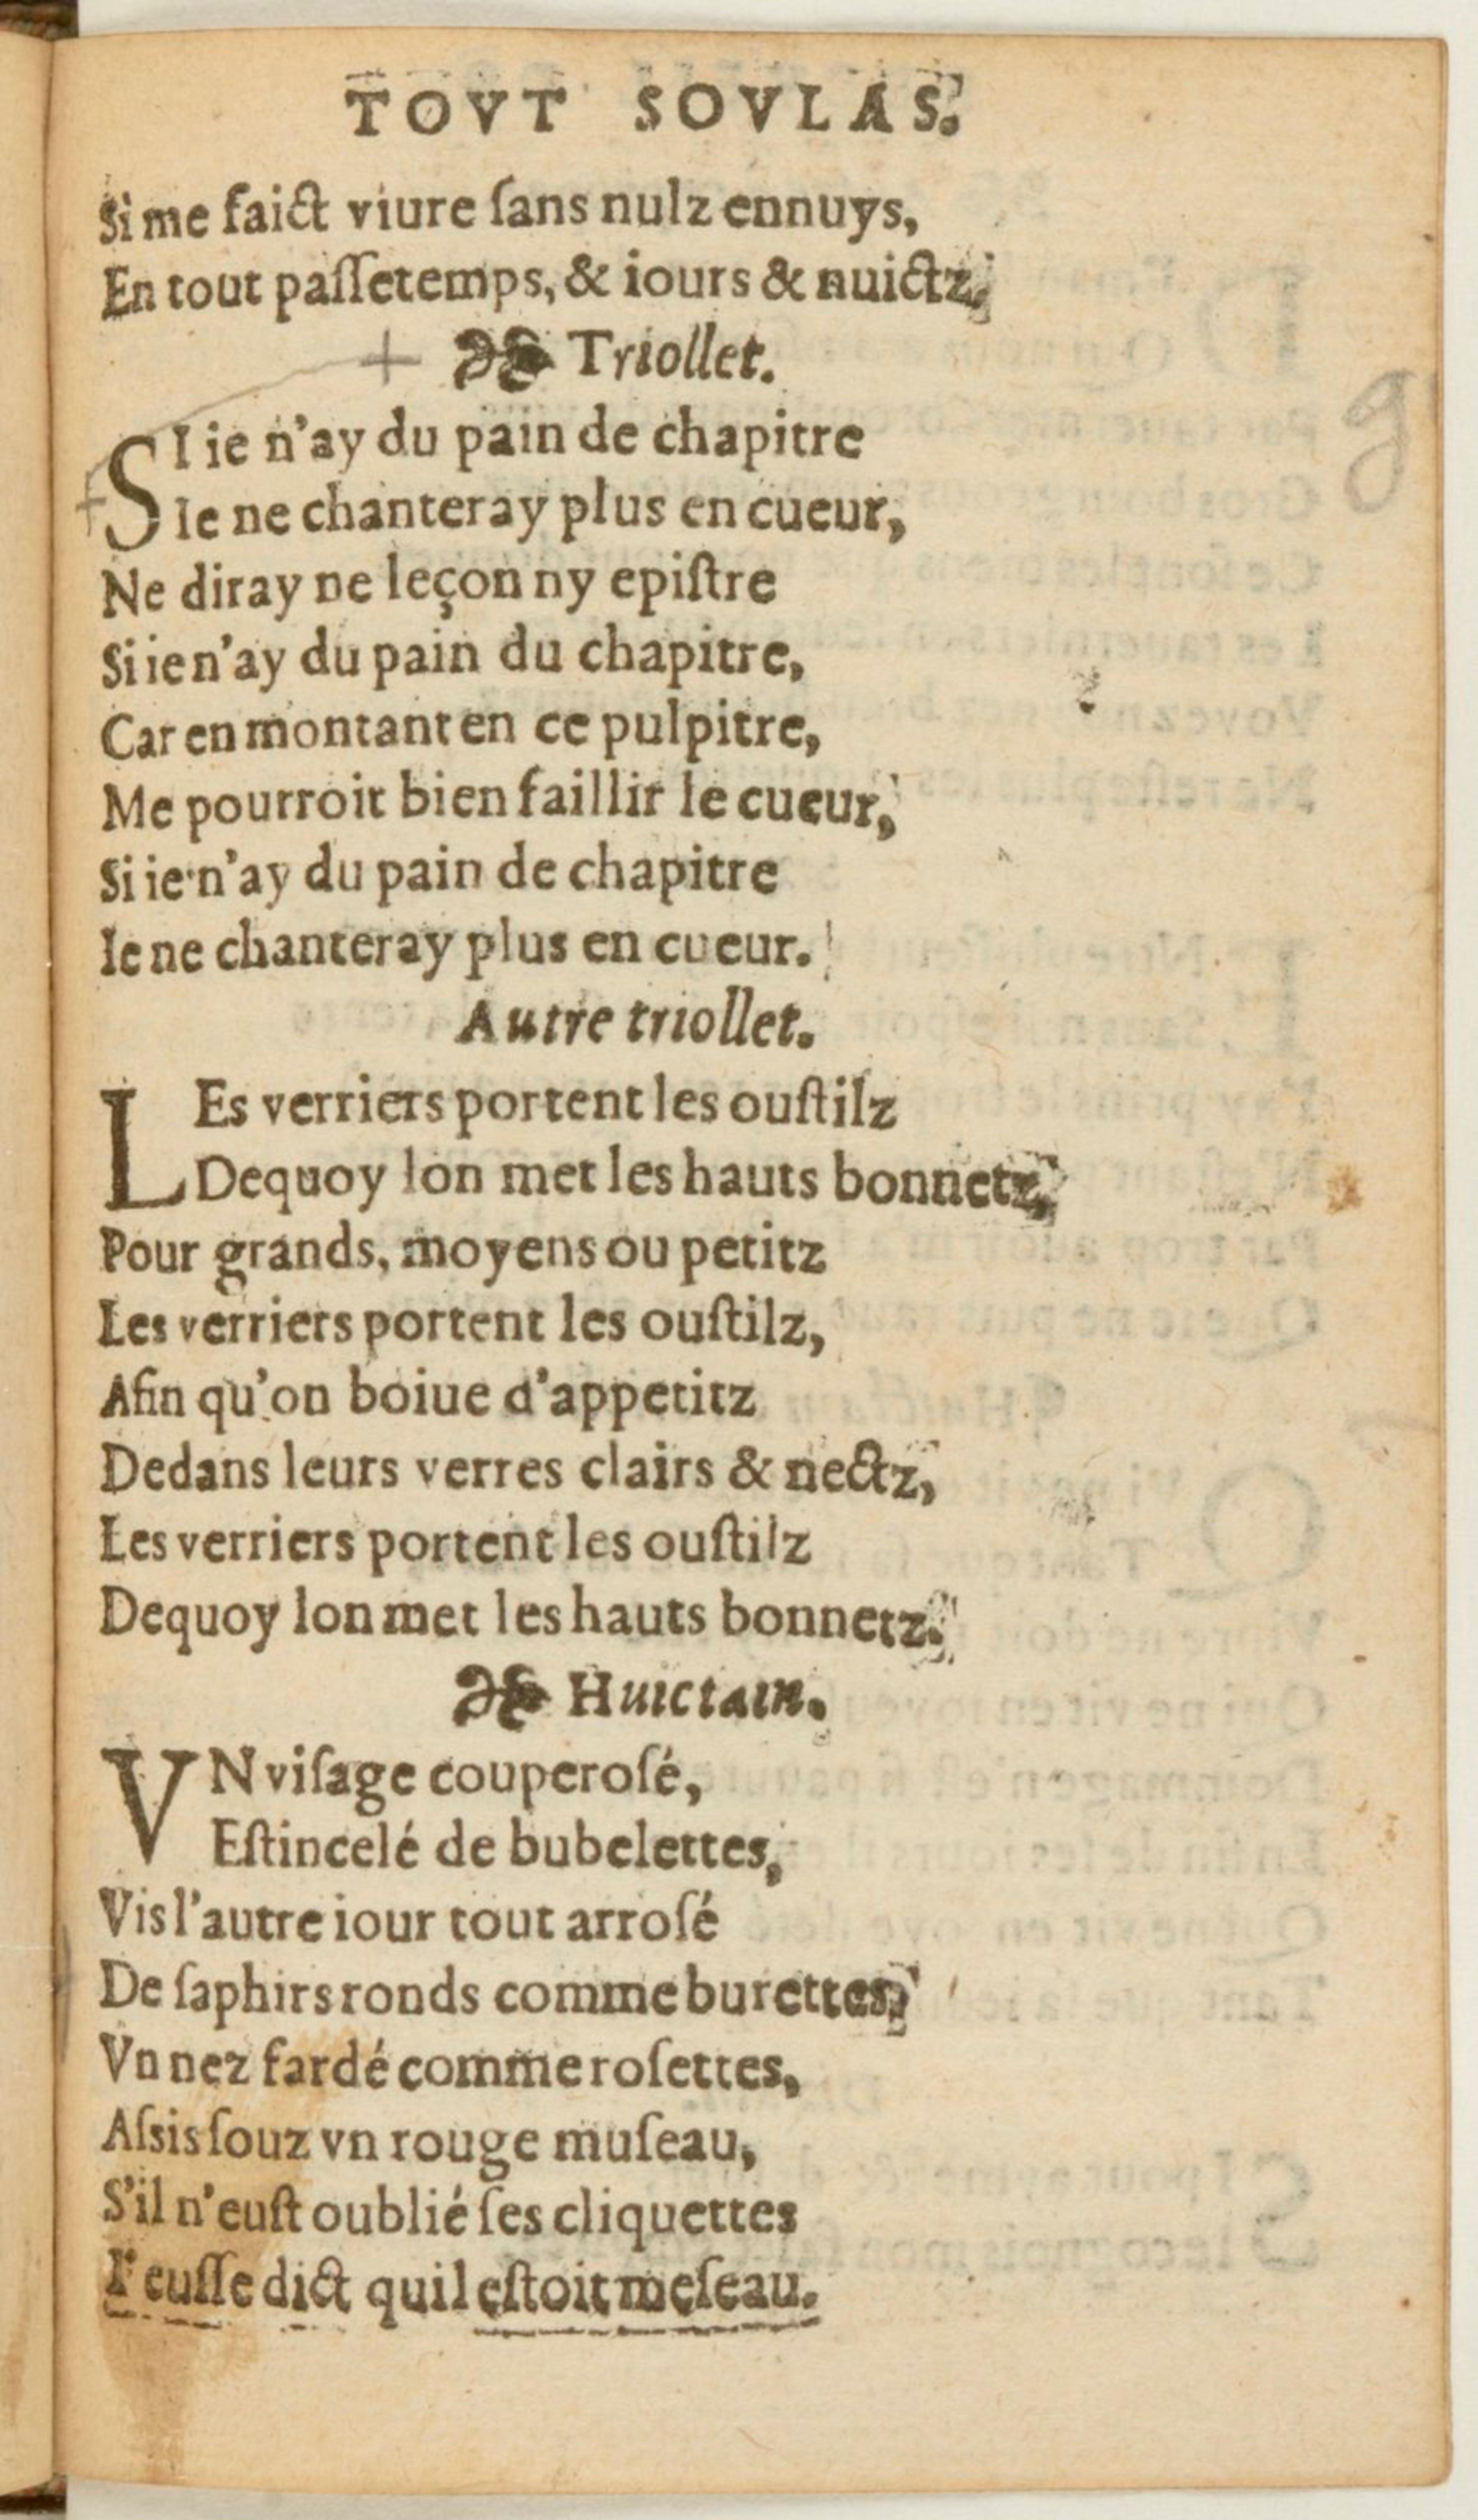 TOVT SOVLAS.
Si me faict viure ſans nulz ennuys,
En tout paſſetemps, & iours & nuictz,
Triollet.
SI ie n'ay du pain de chapitre
Ie ne chanteray plus en cueur,
Ne diray ne leçon ny epiſtre
Si ie n'ay du pain du chapitre,
Car en montant en ce pulpitre,
Me pourroit bien faillir le cueur,
Si ie n'ay du pain de chapitre
Ie ne chanteray plus en cueur.
Autre triollet.
LEs verriers portent les ouſtilz
Dequoy lon met les hauts bonnetz,
Pour grands, moyens ou petitz
Les verriers portent les ouſtilz,
Afin qu'on boiue d'appetitz
Dedans leurs verres clairs & nectz,
Les verriers portent les ouſtilz
Dequoy lon met les hauts bonnetz.
Huictain.
VN viſage couperoſé,
Eſtincelé de bubelettes,
Vis l'autre iour tout arroſé
De ſaphirs ronds comme burettes,
Vn nez fardé comme roſettes,
Aſsis ſouz vn rouge muſeau,
S'il n'euſt oublié ſes cliquettes
I'euſſe dict quil eſtoit meſeau.